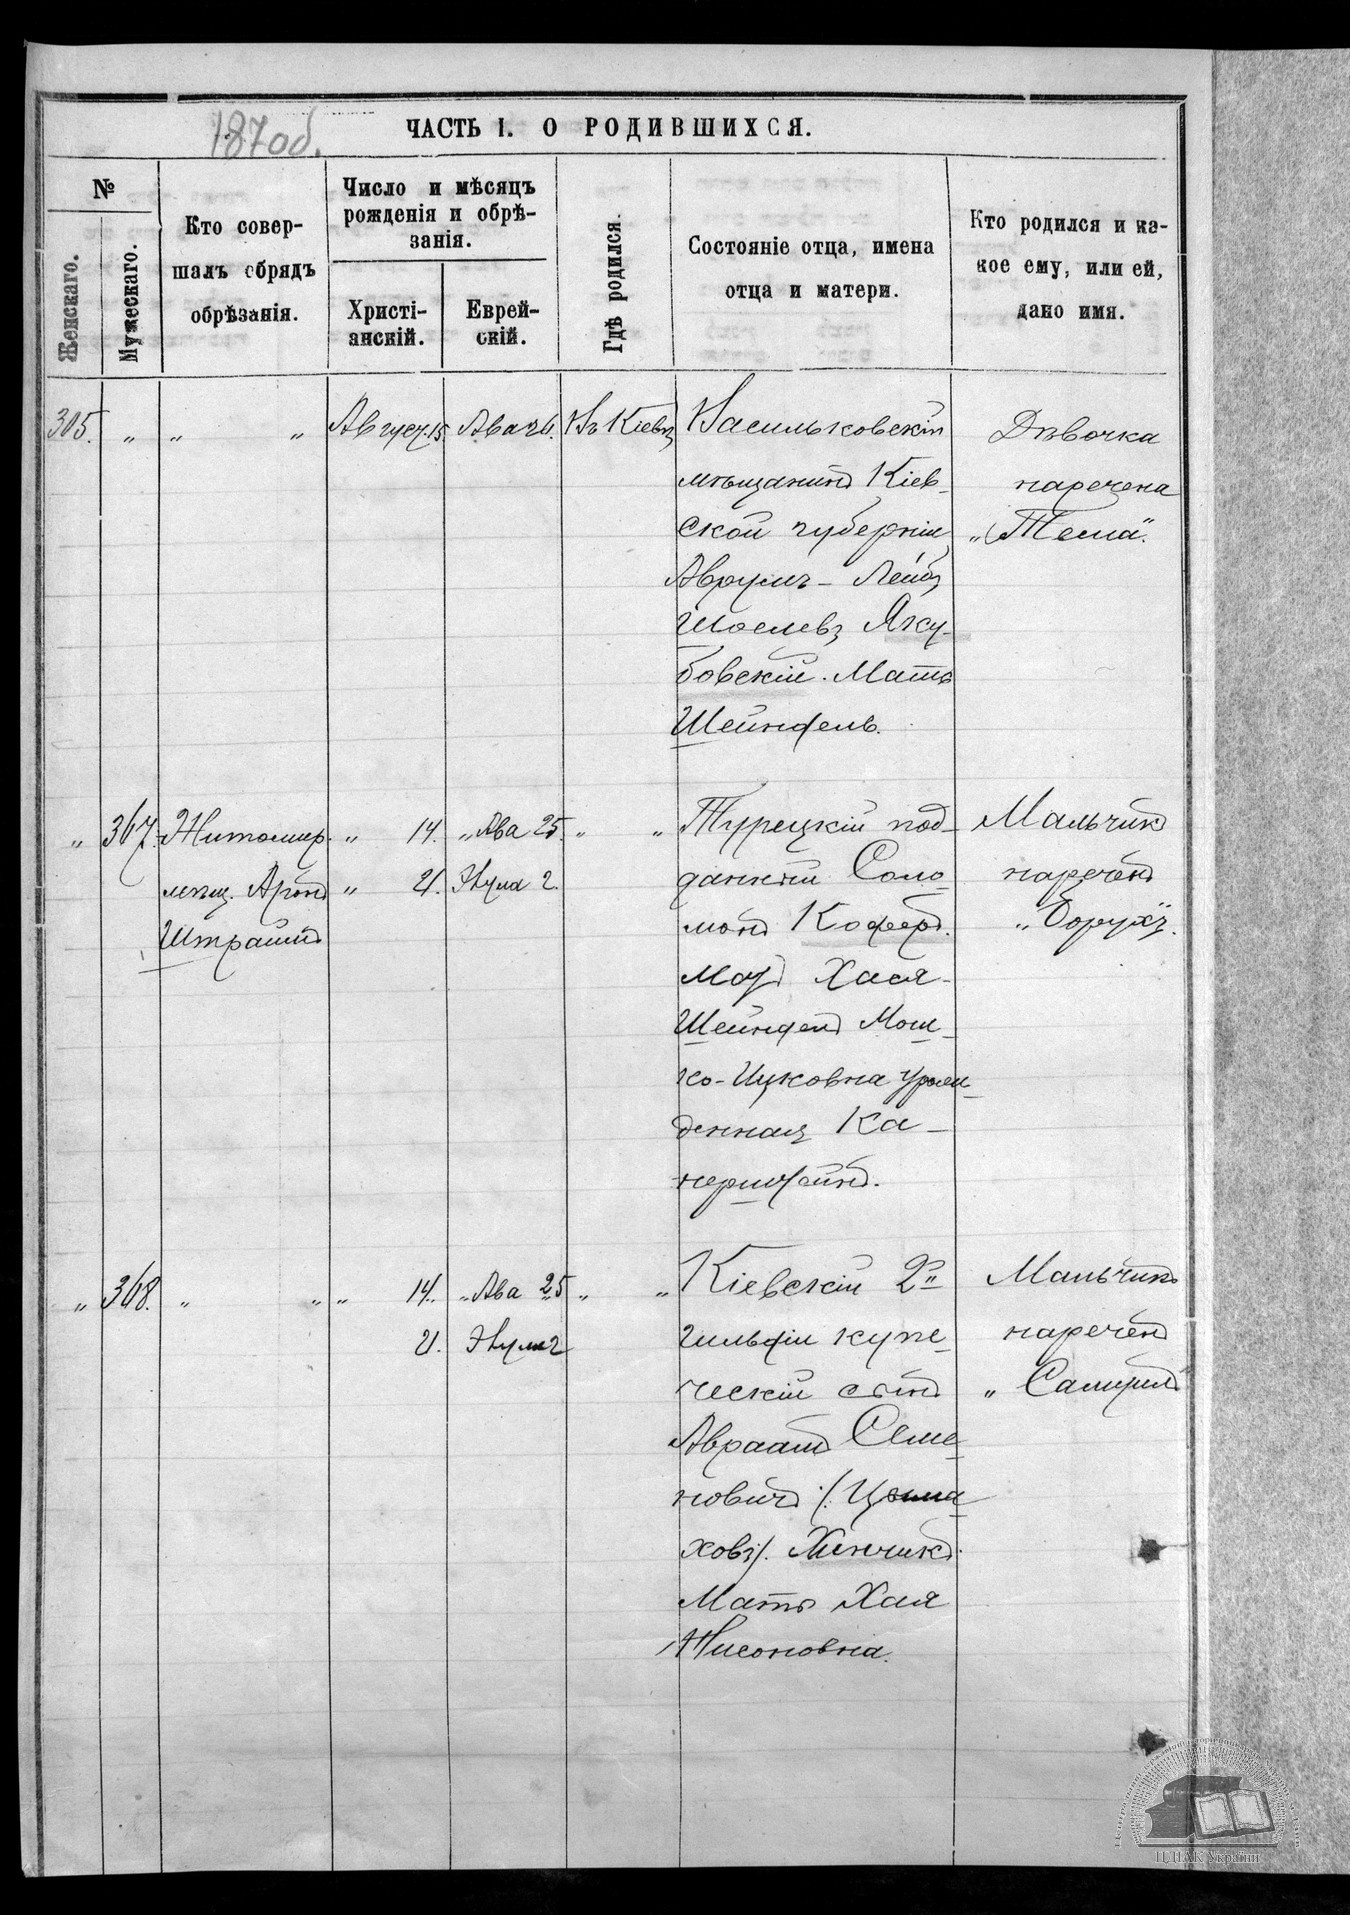 187 об.
ЧАСТЬ I. О РОДИВШИХСЯ.
№
Женскаго.
Мужескаго.
Кто совер-
шалъ обрядъ
обрѣзанія.
Число и мѣсяцъ
рожденія и обрѣ-
занія.
Христі-
анскій.
Еврей-
скій.
Гдѣ родился.
Состояніе отца, имена
отца и матери.
Кто родился и ка-
кое ему, или ей,
дано имя.
305. " " " Август. 15 Ава 26. Въ Кіевѣ
Васильковскій
мѣщанинъ Кіев-
ской губерніи
Аврумъ-Лейбъ
Шоелевъ Яку-
бовскій. Мать
Шейндель.
Дѣвочка
наречена
„Тема“.
" 367. Житомир. " 14. " Ава 25. " "
мѣщ. Аронъ " 21. Элула 2.
Штраймъ
Турецкій под-
данный Соло-
монъ Коферъ.
Мать Хася-
Шейндель Мош-
ко-Ицковна урож-
денная Ка-
нерштейнъ.
Мальчикъ
нареченъ
„Борухъ“.
" 368. " " " 14. " Ава 25 " "
21. Элула 2
Кіевскій 2й
гильдіи купе-
ческій сынъ
Авраамъ Семе-
новичъ /: Цема-
ховъ/. Хенчикъ.
Мать Хая
Нисоновна.
Мальчикъ
нареченъ
„Самуилъ
ЦДІАК України